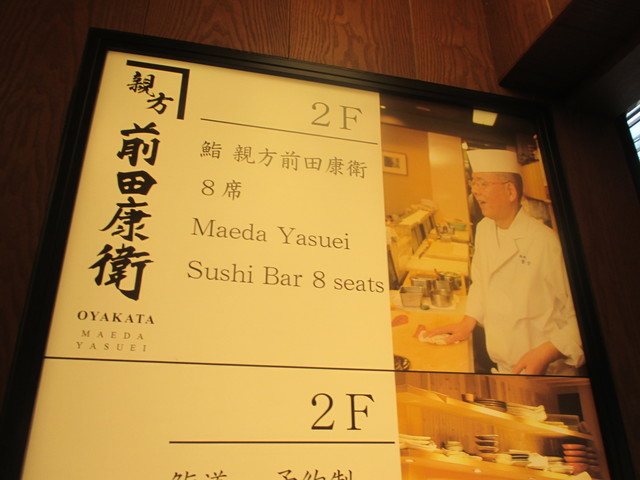 親方
前田康衛
OYAKATA
MAEDA
YASUEI
2F
鮨 親方前田康衛
8席
Maeda Yasuei
Sushi Bar 8 seats
2F
鮨道 予約制